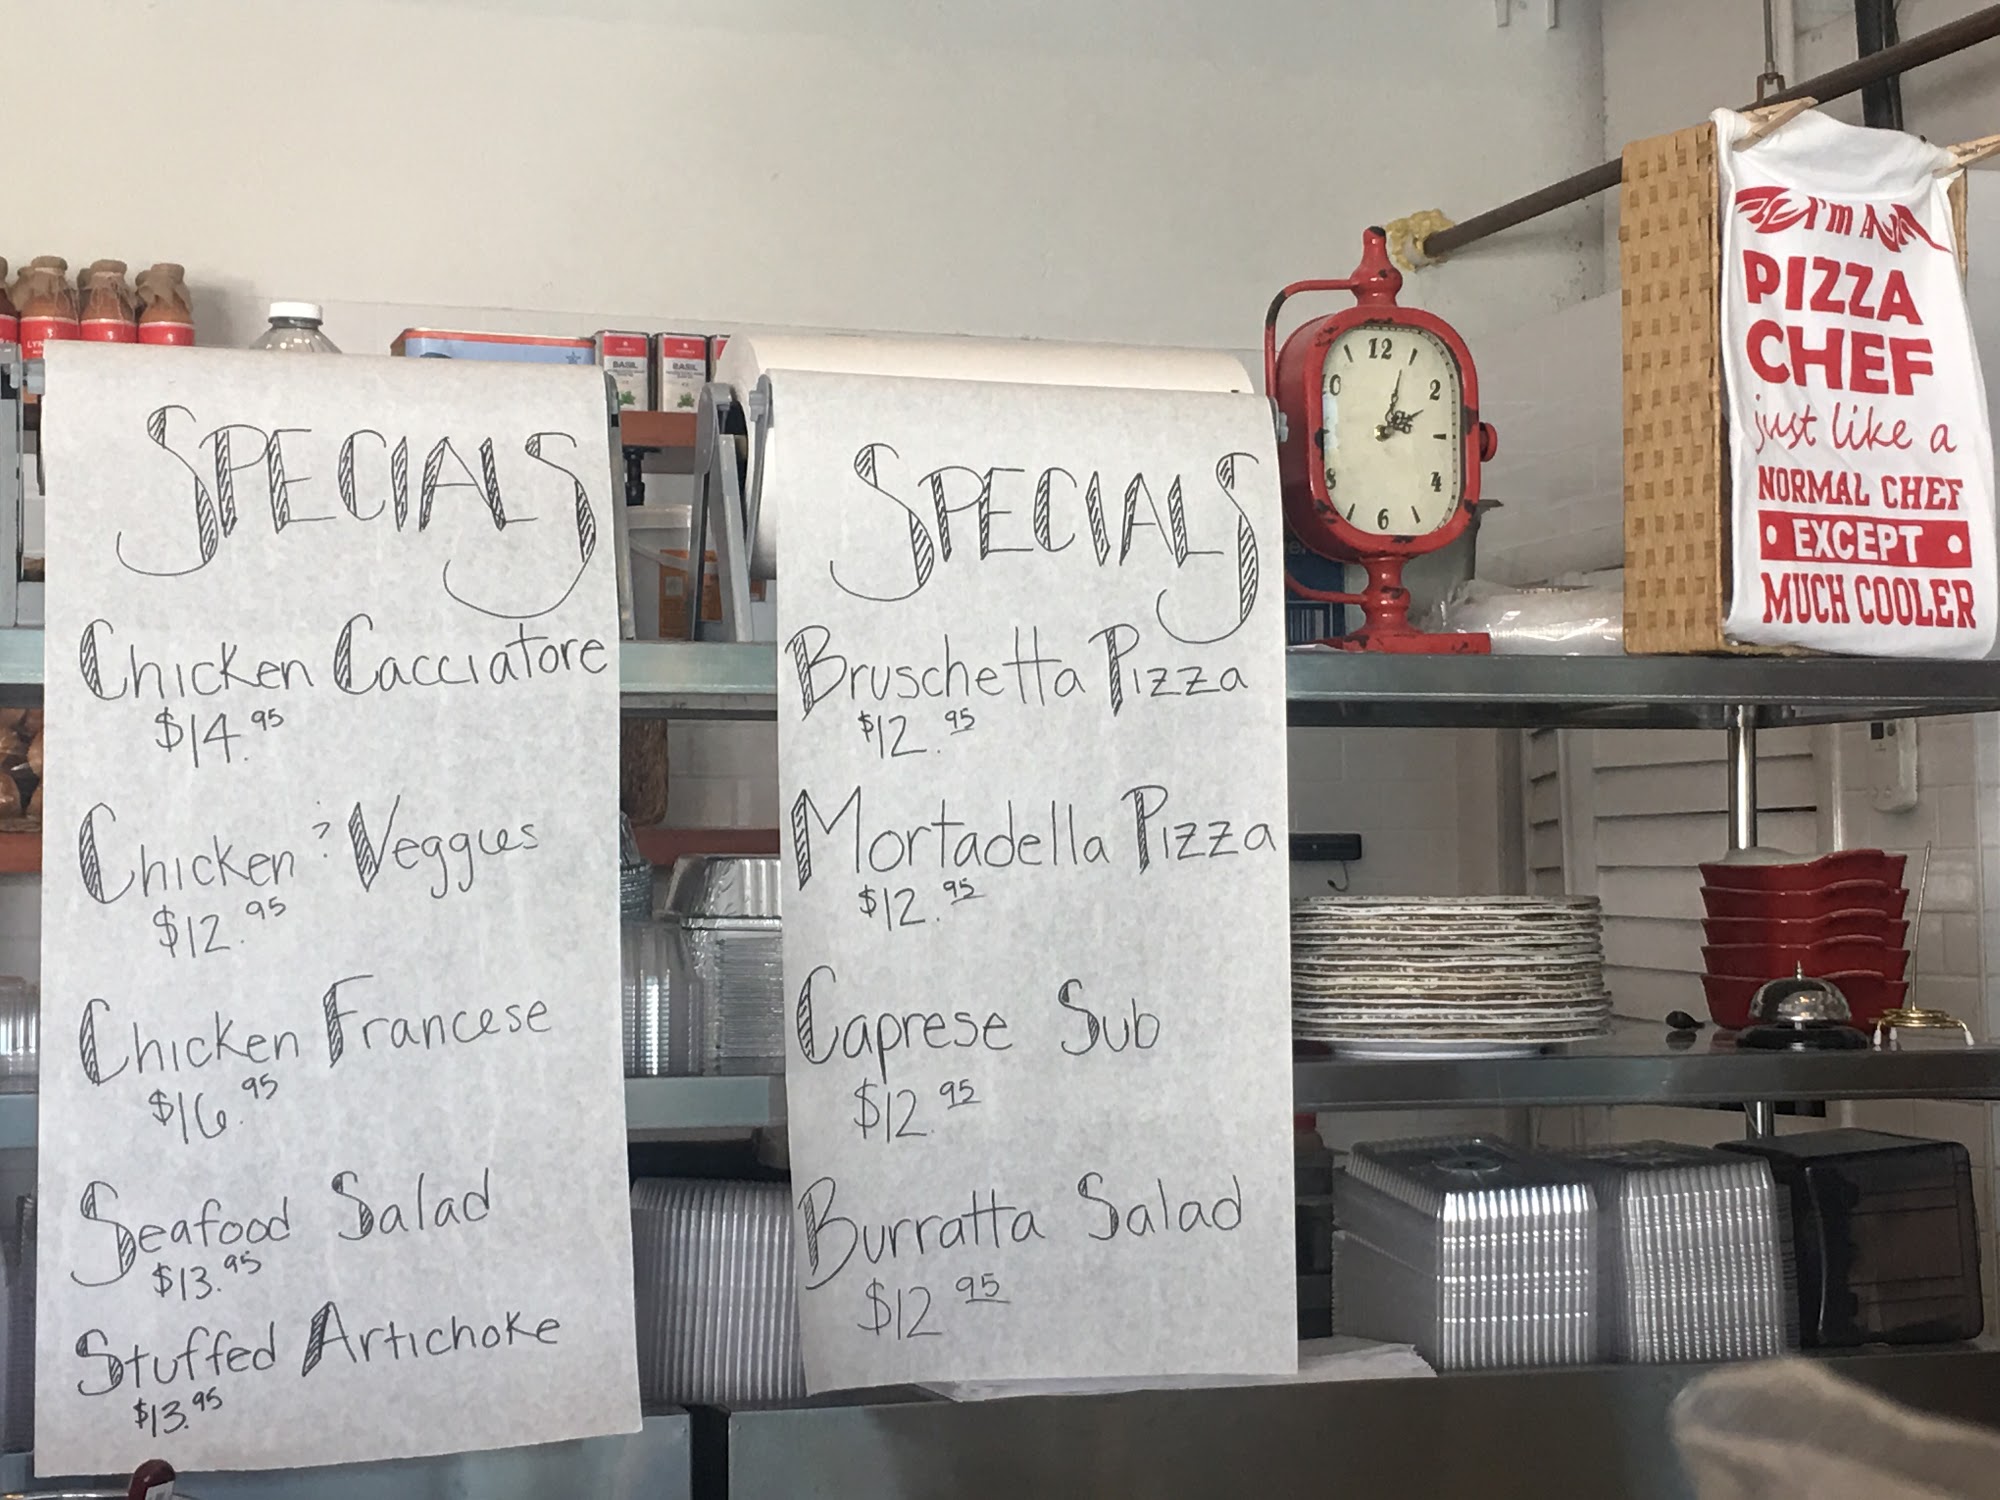 SPECIALS
Chicken Cacciatore
$14.95
Chicken ? Veggies
$12.95
Chicken Francese
$16.95
Seafood Salad
$13.95
Stuffed Artichoke
$13.95
SPECIALS
Bruschetta Pizza
$12.95
Mortadella Pizza
$12.95
Caprese Sub
$12.95
Burratta Salad
$12 95
BASIL
BASIL
12
2
4
6
8
0
I'M A
PIZZA
CHEF
just like a
NORMAL CHEF
• EXCEPT •
MUCH COOLER